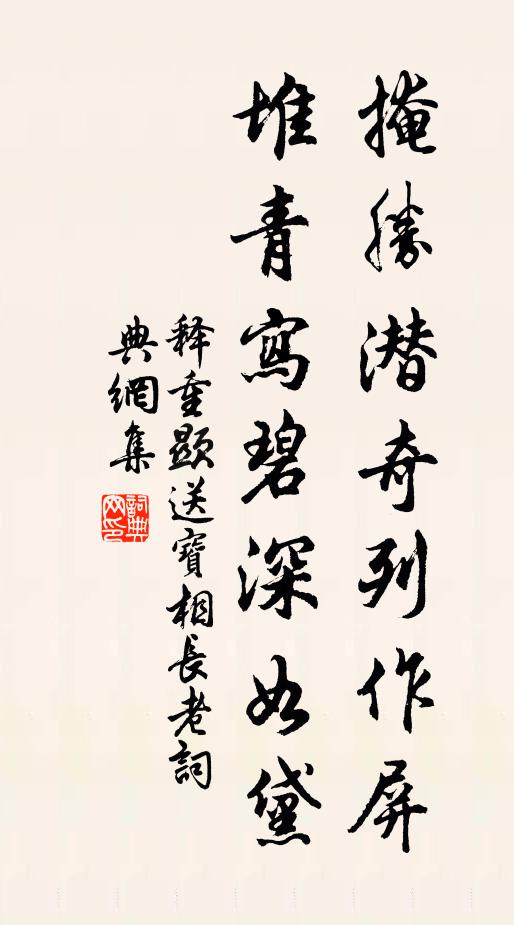 掩勝潜奇列作屏
堆青寫碧深如黛
释重顯送寶相長老詞
典網集
詞典網印